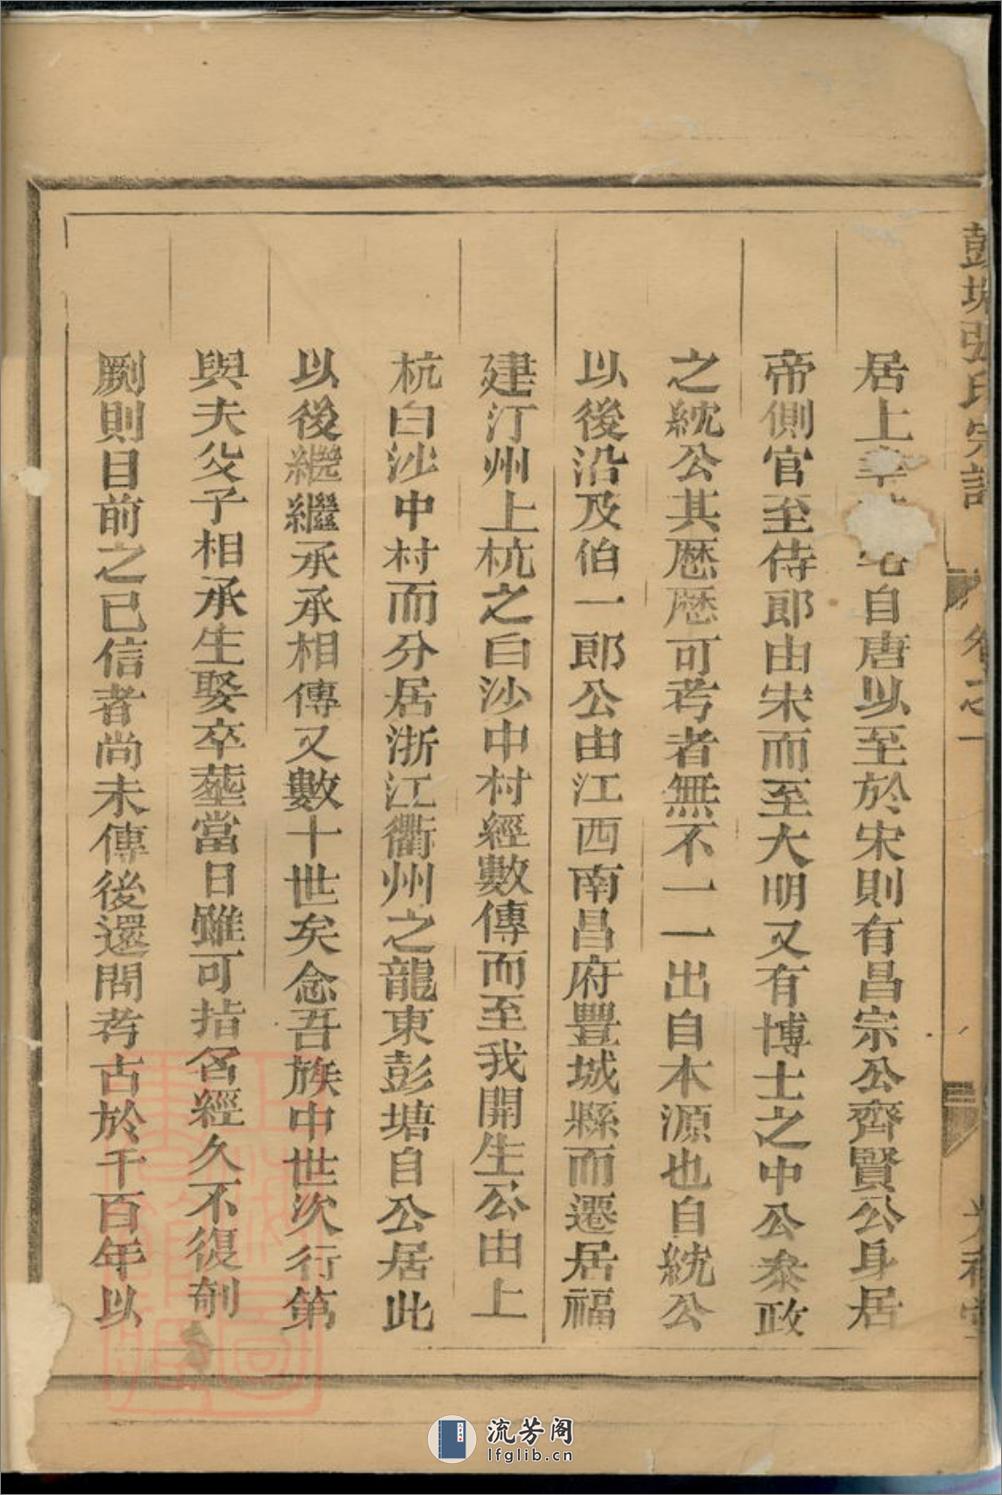 彭塘張氏宗譜 卷之一
居上 自唐以至於宋則有昌宗公齊賢公身居
帝側官至侍郎由宋而至大明又有博士之中公叅政
之統公其歷歷可考者無不一一出自本源也自統公
以後沿及伯一郎公由江西南昌府豐城縣而遷居福
建汀州上杭之白沙中村經數傳而至我開生公由上
杭白沙中村而分居浙江衢州之龍東彭塘自公居此
以後繼繼繩承承相傳又數十世矣念吾族中世次行第
與夫父子相承生娶卒塟當日雖可指名經久不復剞
劂則目前之已信者尚未傳後還問考古於千百年以
流芳阁
lfglib.cn